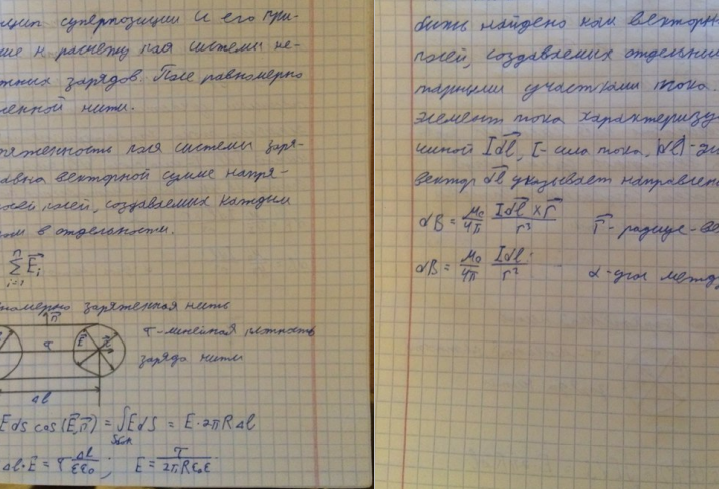 цип суперпозиции и его при-
ие к расчету поля системы не-
жных зарядов. Поле равномерно
женной нити.
ряженность поля системы заря-
авна векторной сумме напря-
остей полей, создаваемых каждым
ом в отдельности.
n
∑ E⃗i
i=1
номерно заряженная нить
n⃗
τ - линейная плотность
заряда нити
τ
Δl
E ds cos(E⃗,n⃗) = ∫ E ds = E·2πR Δl
Sбок
Δl·E = τ Δl/εε₀ ; E = τ/2πRε₀ε
быть найдено как векторн
полей, создаваемых отдельны
тарными участками тока.
Элемент тока характеризу
чиной I dl⃗, I - сила тока, |dl| - эл
вектор dl⃗ указывает направлен
dB = μ₀/4π I dl⃗ × r⃗/r³ r⃗ - радиус-ве
dB = μ₀/4π I dl/r² α - угол между